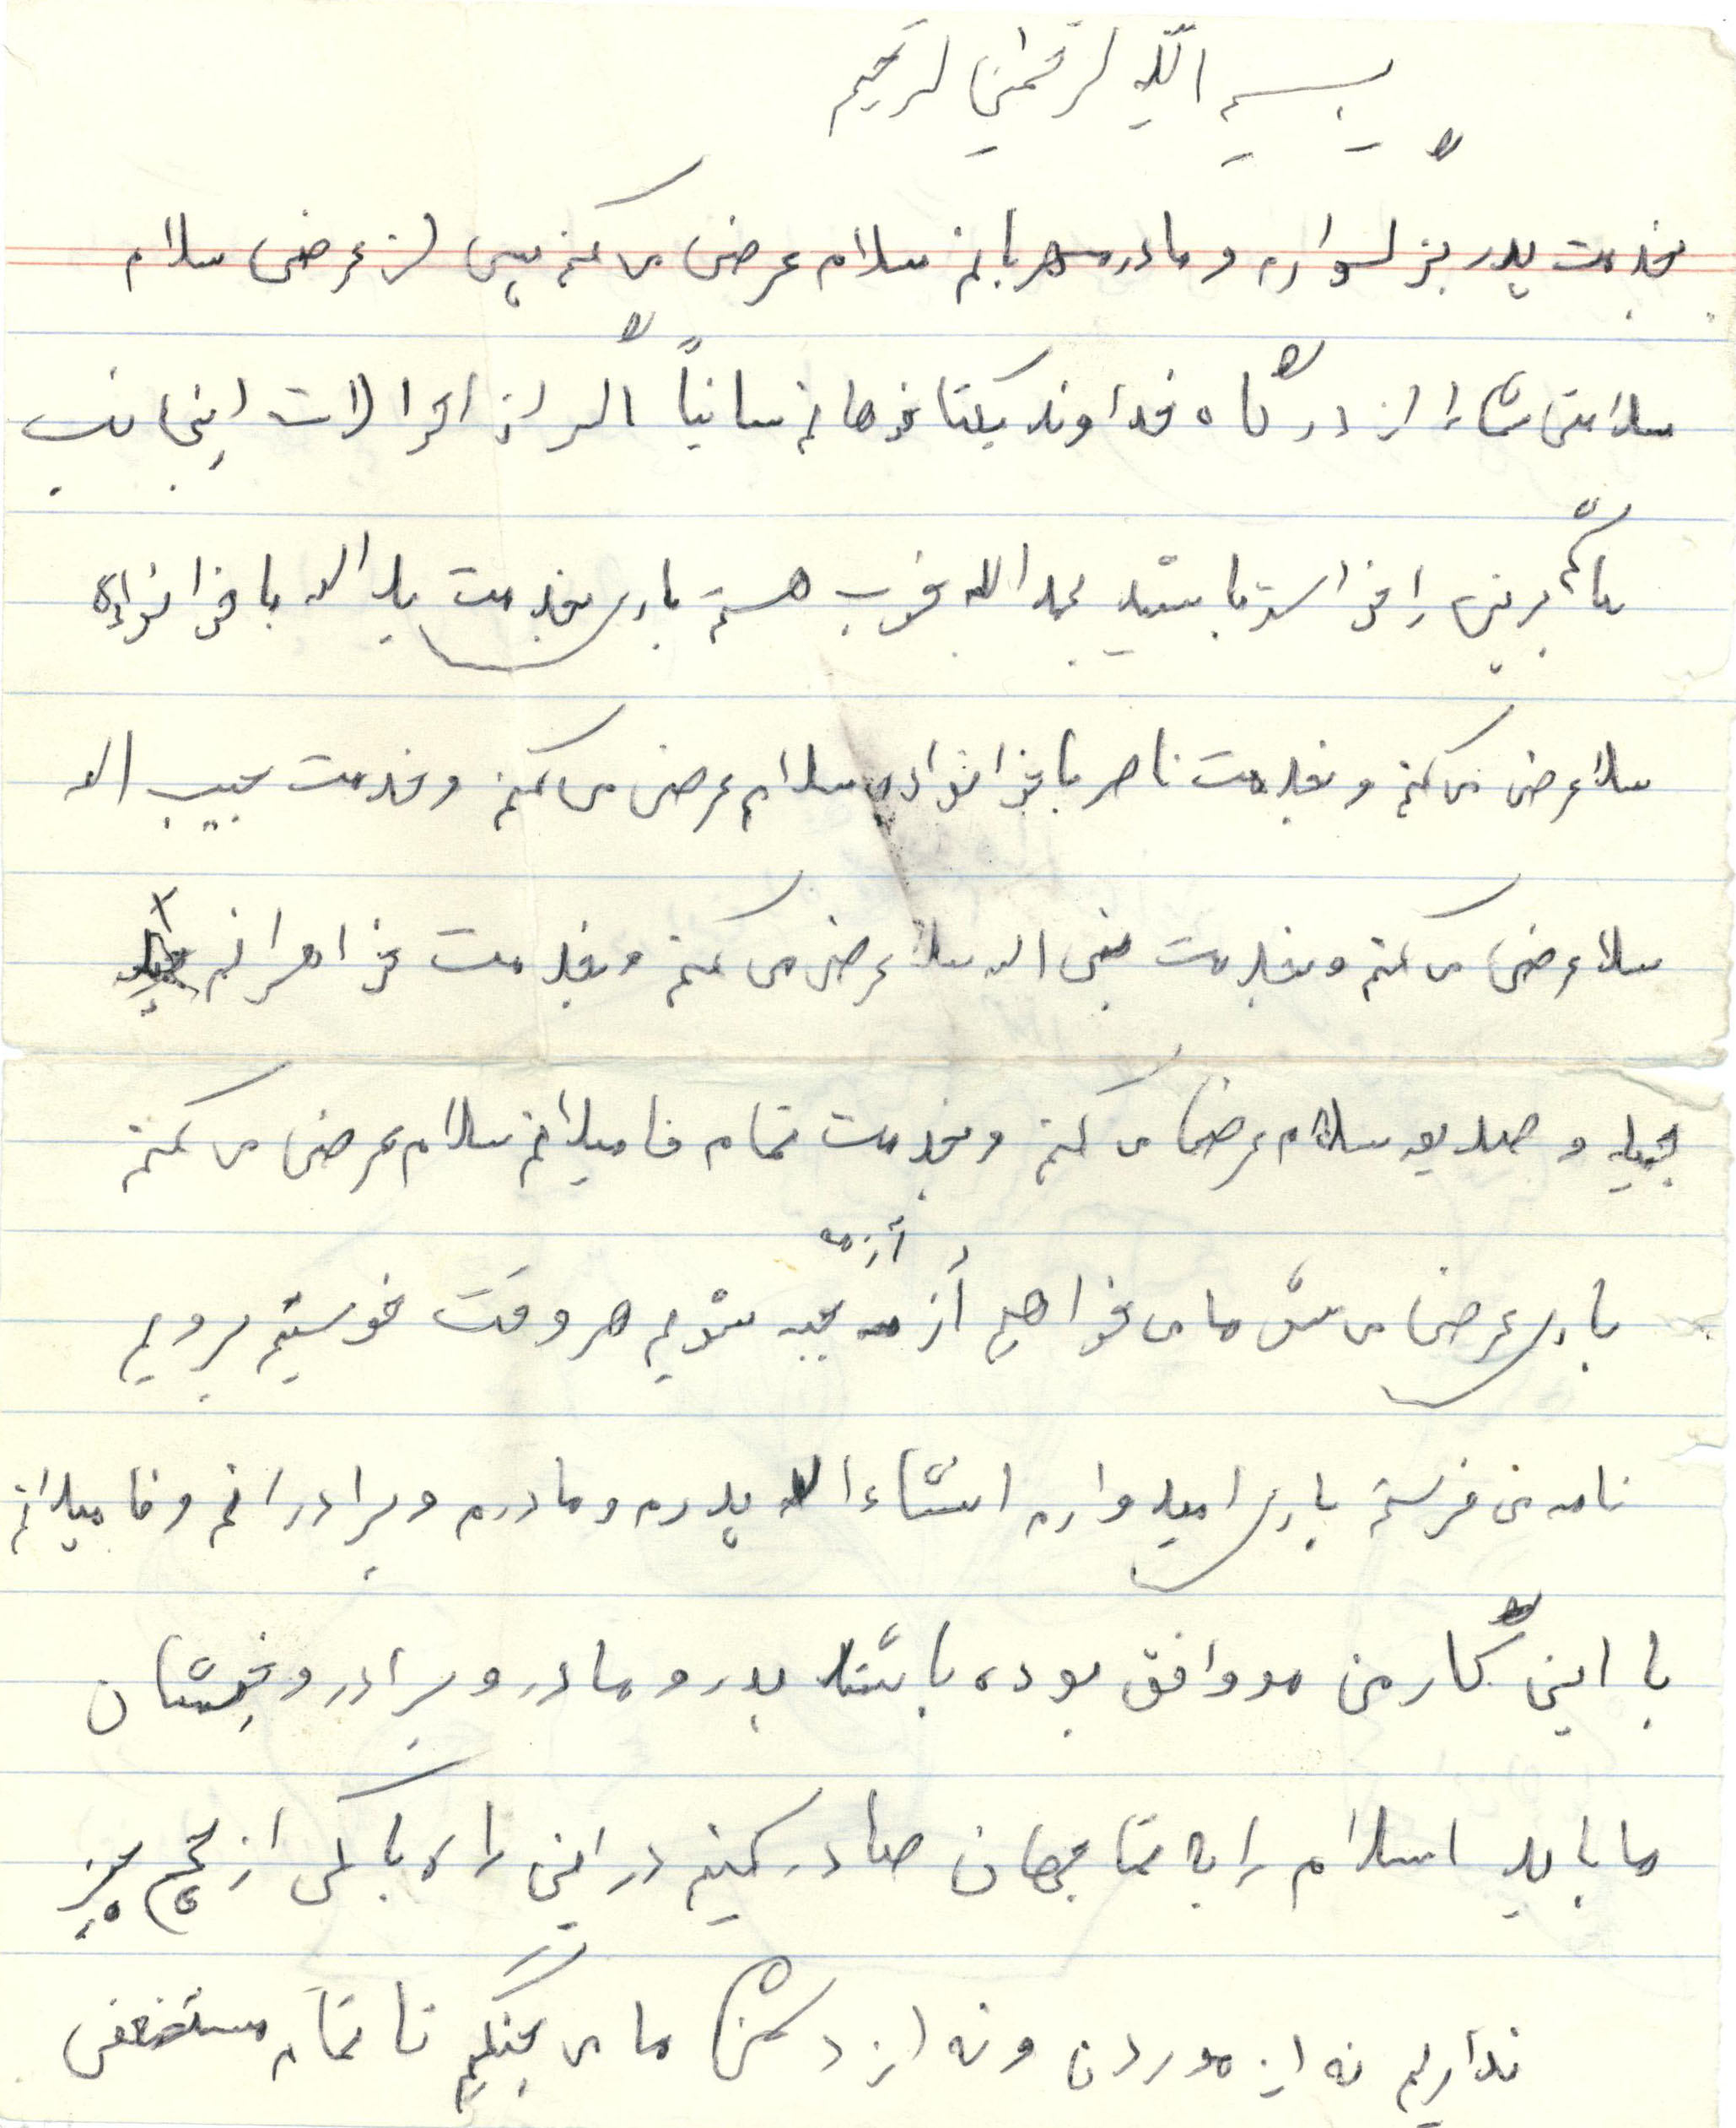 بسم الله الرحمن الرحیم
بخدمت پدر بزلسوارم و مادر مهربانم سلام عرض می کنم پس از عرض سلام
سلامتی شما را از درگاه خداوند یکتا خواهانم سانیاً اگر از احوالات اینجانب
خواسته باشید بحمد الله خوب هستم باری بخدمت ید اله با خوانواده
سلا عرض می کنم و بخدمت ناصر با خوانواده سلام عرض می کنم و خدمت حبیب اله
سلا عرض می کنم و بخدمت نبی اله سلا عرض می کنم و بخدمت خواهرانم
جمیله و صدیقه سلام عرض می کنم و بخدمت تمام فامیلانم سلام عرض می کنم
باری عرض می شود ما می خواهیم أزمه جبه شویم هر وقت خوستیم برویم
نامه می فرستم باری امیدوارم انشاءالله پدرم و مادرم و برادرانم و فامیلانم
با این کار من مووافق بوده باشند پدر و مادر و برادر و خیشان
ما باید اسلام را به تمام جهان صادر کنیم در این راه باکی از هیچ چیز
نداریم نه از موردن و نه از دشمن ما می جنگیم تا تمام مستضعفی